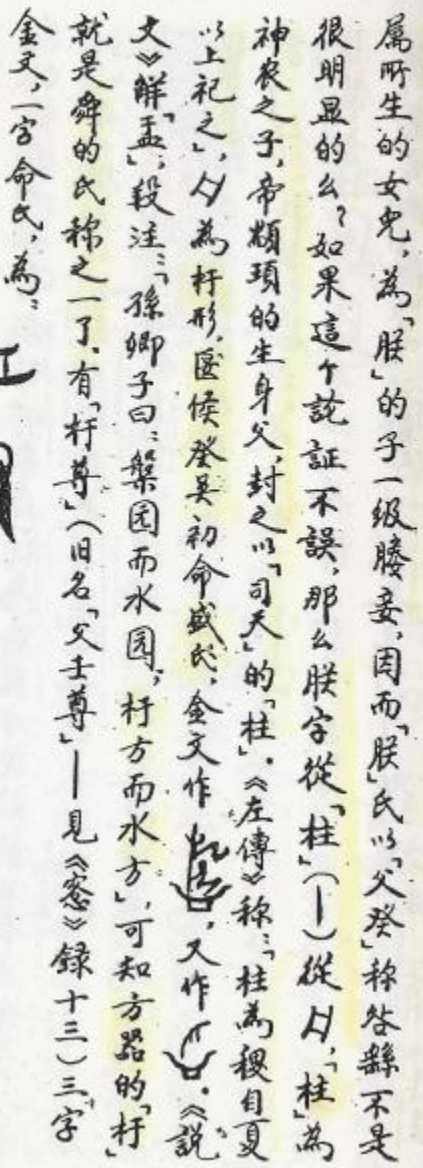 属所生的女児，為「朕」的子一級媵妾，因而「朕」氏以「父癸」称咎繇不是
很明显的么？如果這个論証不誤，那么朕字從「柱」（丨）從，「柱」為
神农之子，帝顓頊的生身父，封之以「司天」的「柱」。《左傳》称：「柱為稷自夏
以上祀之」，為杅形，匽侯癸具初命盛氏，金文作，又作。《説
文》解「盂」，段注：「孫卿子曰：槃园而水园，杅方而水方」，可知方器的「杅」
就是舜的氏称之一了。有「杅尊」（旧名「父壬尊」——見《窓》録十三）三字
金文，一字命氏，為：